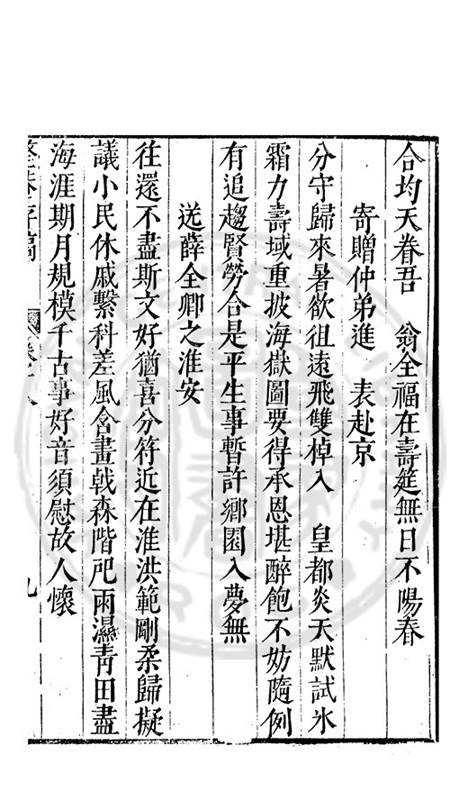 合均天眷吾　翁全福在壽筵無日不陽春
寄贈仲弟進　表赴京
分守歸來暑欲徂遠飛雙棹入　皇都炎天默試氷
霜力壽域重披海嶽圖要得承恩堪醉飽不妨隨例
有追趨賢勞合是平生事暫許鄉園入夢無
送薛全卿之淮安
往還不盡斯文好猶喜分符近在淮洪範剛柔歸擬
議小民休戚繫科差風含畫戟森階戺雨濕青田盡
海涯期月規模千古事好音須慰故人懷
存稿
九